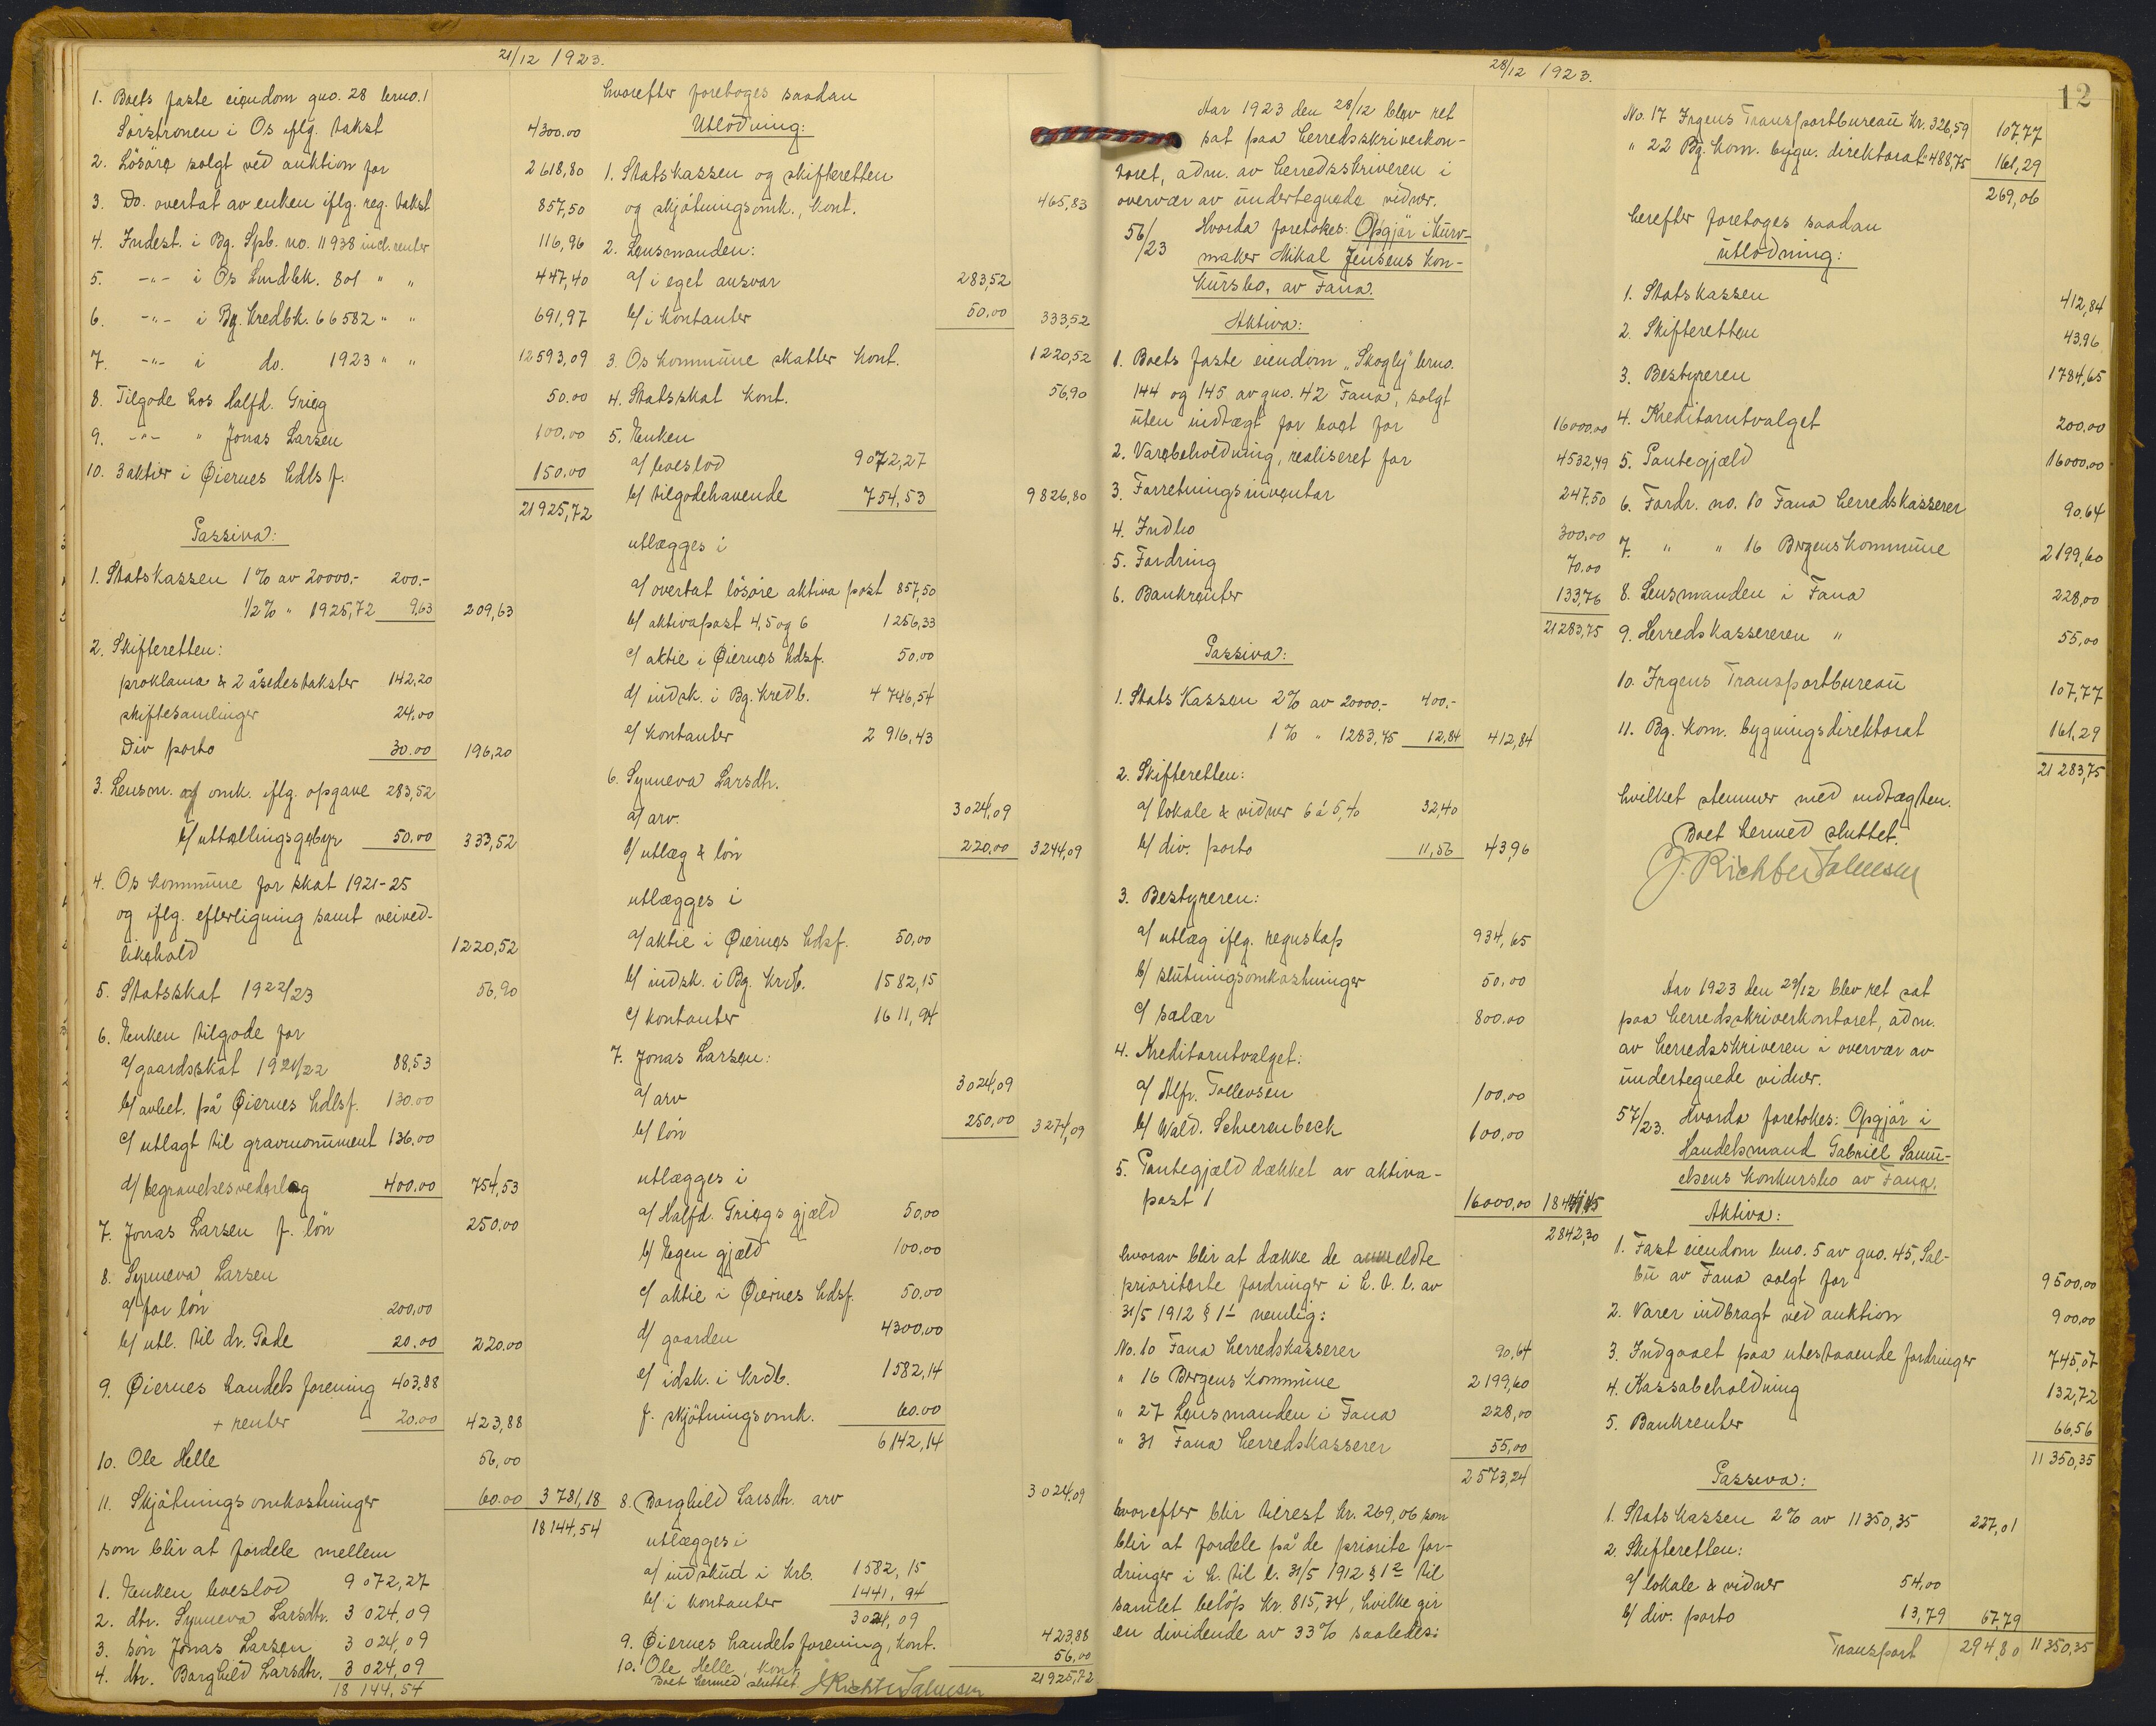 21/12 1923.
1. Boets faste eiendom gno. 28 brno. 1
Sörströnen i Os iflg. takst 4300.00
2. Lösöre solgt ved auktion for 2618,80
3. Do. overtat av enken iflg. reg. takst 857,50
4. Indest. i Bg. Spb. no. 11938 incl. renter 116,96
5. -"- i Os Lmdbk. 801 " " 447,40
6. -"- i Bg. Kredbk. 66582 " " 691,97
7. -"- i do. 1923 " " 12593,09
8. Tilgode hos Halfd. Grieg 50.00
9. -"- " Jonas Larsen 100.00
10. 3 aktier i Øiernes hdls f. 150.00
21925,72
Passiva:
1. Statskassen 1% av 20000.- 200.-
1/2% " 1925,72 9,63 209,63
2. Skifteretten:
proklama & 2 åsedestakster 142,20
skiftesamlinger 24,00
Div porto 30.00 196,20
3. Lensm. a/ omk. iflg. opgave 283,52
b/ uttællingsgebyr 50.00 333,52
4. Os kommune for skat 1921-25
og iflg. efterligning samt veived-
likehold 1220,52
5. Statsskat 1922/23 56,90
6. Enken tilgode for
a/ gaardsskat 1921/22 88,53
b/ avbet. på Øiernes hdlsf. 130.00
c/ utlagt til gravmonument 136,00
d/ begravelsesvederlag 400.00 754,53
7. Jonas Larsen f. lön 250.00
8. Synneva Larsen
a/ for lön 200,00
b/ utl. til dr. Gade 20.00 220.00
9. Øiernes handels forening 403,88
+ renter 20.00 423,88
10. Ole Helle 56,00
11. Skjötningsomkostninger 60.00 3781,18
18144,54
som blir at fordele mellem
1. Enken boeslod 9072,27
2. dtr. Synneva Larsdtr. 3024,09
3. sön Jonas Larsen 3024,09
4. dtr. Borghild Larsdtr. 3024,09
18144,54
hvorefter foretoges saadan
Utlodning:
1. Statskassen og skifteretten
og skjötningsomk., kont. 465,83
2. Lensmanden:
a/ i eget ansvar 283,52
b/ i kontanter 50,00 333,52
3. Os kommune skatter kont. 1220,52
4. Statsskat kont. 56,90
5. Enken
a/ boeslod 9072,27
b/ tilgodehavende 754,53 9826,80
utlægges i
a/ overtat lösöre aktiva post 857,50
b/ aktivapost 4,5 og 6 1256,33
c/ aktie i Øiernes hdsf. 50.00
d/ indsk. i Bg. Kredb. 4746,54
e/ kontanter 2916,43
6. Synneva Larsdtr.
a/ arv. 3024,09
b/ utlæg & lön 220.00 3244,09
utlægges i
a/ aktie i Øiernes hdsf. 50,00
b/ indsk. i Bg. Krdb. 1582,15
c/ kontanter 1611,94
7. Jonas Larsen:
a/ arv 3024,09
b/ lön 250,00 3274,09
utlægges i
a/ Halfd. Griegs gjæld 50,00
b/ Egen gjæld 100,00
c/ aktie i Øiernes hdsf. 50.00
d/ gaarden 4300.00
e/ idsk. i Krdb. 1582,14
f. skjötningsomk. 60.00
6142,14
8. Borghild Larsdtr. arv 3024,09
utlægges i
a/ indskud i Krb. 1582,15
b/ i kontanter 1441,94
3024,09
9. Øiernes handelsforening, kont. 423,88
10. Ole Helle, kont. 56,00
Boet hermed sluttet. 21925,72
28/12 1923.
12
Aar 1923 den 28/12 blev ret
sat paa herredsskriverkon-
toret, adm. av herredsskriveren i
overvær av undertegnede vidner.
56/23 Hvorda foretokes: Opgjör i Kurv-
maker Mikal Jensens kon-
kursbo, av Fana.
Aktiva:
1. Boets faste eiendom "Skogly" brno.
144 og 145 av gno. 42 Fana, solgt
uten indtægt for boet for 16000,00
2. Varebeholdning, realiseret for 4532,49
3. Forretningsinventar 247,50
4. Indbo 300.00
5. Fordring 70.00
6. Bankrenter 133,76
21283,75
Passiva:
1. Stats Kassen 2% av 20000.- 400.-
1% " 1283,75 12,84 412,84
2. Skifteretten:
a/ lokale & vidner 6 á 5,40 32,40
b/ div. porto 11,56 43,96
3. Bestyreren:
a/ utlæg iflg. regnskap 934,65
b/ slutningsomkostninger 50.00
c/ salær 800.00
4. Kreditorutvalget:
a/ Alfr. Tollevsen 100,00
b/ Wald. Schierenbeck 100,00
5. Pantegjæld dækket av aktiva-
post 1 16000,00 18441,45
2842,30
hvorav blir at dække de anmeldte
prioriterte fordringer i h. t. l. av
31/5 1912 § 1-1 nemlig:
No. 10 Fana herredskasserer 90,64
" 16 Bergens Kommune 2199,60
" 27 Lensmanden i Fana 228,00
" 31 Fana herredskasserer 55,00
2573,24
hvorefter blir tilrest kr. 269,06 som
blir at fordele på de priorite for-
dringer i h. til l. 31/5 1912 § 1-2 til
samlet belöp kr. 815,34, hvilke gir
en dividende av 33% saaledes:
No. 17 Irgens Transportbureau kr. 326,59 107,77
" 22 Bg. kom. bygn. direktorat " 488,75 161,29
269,06
herefter foretoges saadan
utlodning:
1. Statskassen 412,84
2. Skifteretten 43,96
3. Bestyreren 1784,65
4. Kreditorutvalget 200.00
5. Pantegjæld 16000.00
6. Fordr. no. 10 Fana herredskasserer 90.64
7. " " 16 Bergens Kommune 2199,60
8. Lensmanden i Fana 228,00
9. Herredskassereren " 55,00
10. Irgens Transportbureau 107,77
11. Bg. kom. bygningsdirektorat 161,29
21283,75
hvilket stemmer med indtægten.
Boet hermed sluttet.
Aar 1923 den 29/12 blev ret sat
paa herredsskriverkontoret, adm.
av herredsskriveren i overvær av
undertegnede vidner.
57/23. Hvorda foretokes: Opgjör i
Handelsmand Gabriel Samu-
elsens konkursbo av Fana.
Aktiva:
1. Fast eiendom bno. 5 av gno. 45, Sal-
bu av Fana solgt for 9500,00
2. Varer indbragt ved auktion 900,00
3. Indgaaet paa utestaaende fordringer 745,07
4. Kassabeholdning 132,72
5. Bankrenter 66,56
11350,35
Passiva:
1. Stats Kassen 2% av 11350,35 227,01
2. Skifteretten:
a/ lokale & vidner 54,00
b/ div. porto 13,79 67,79
Transport 294,80 11350,35